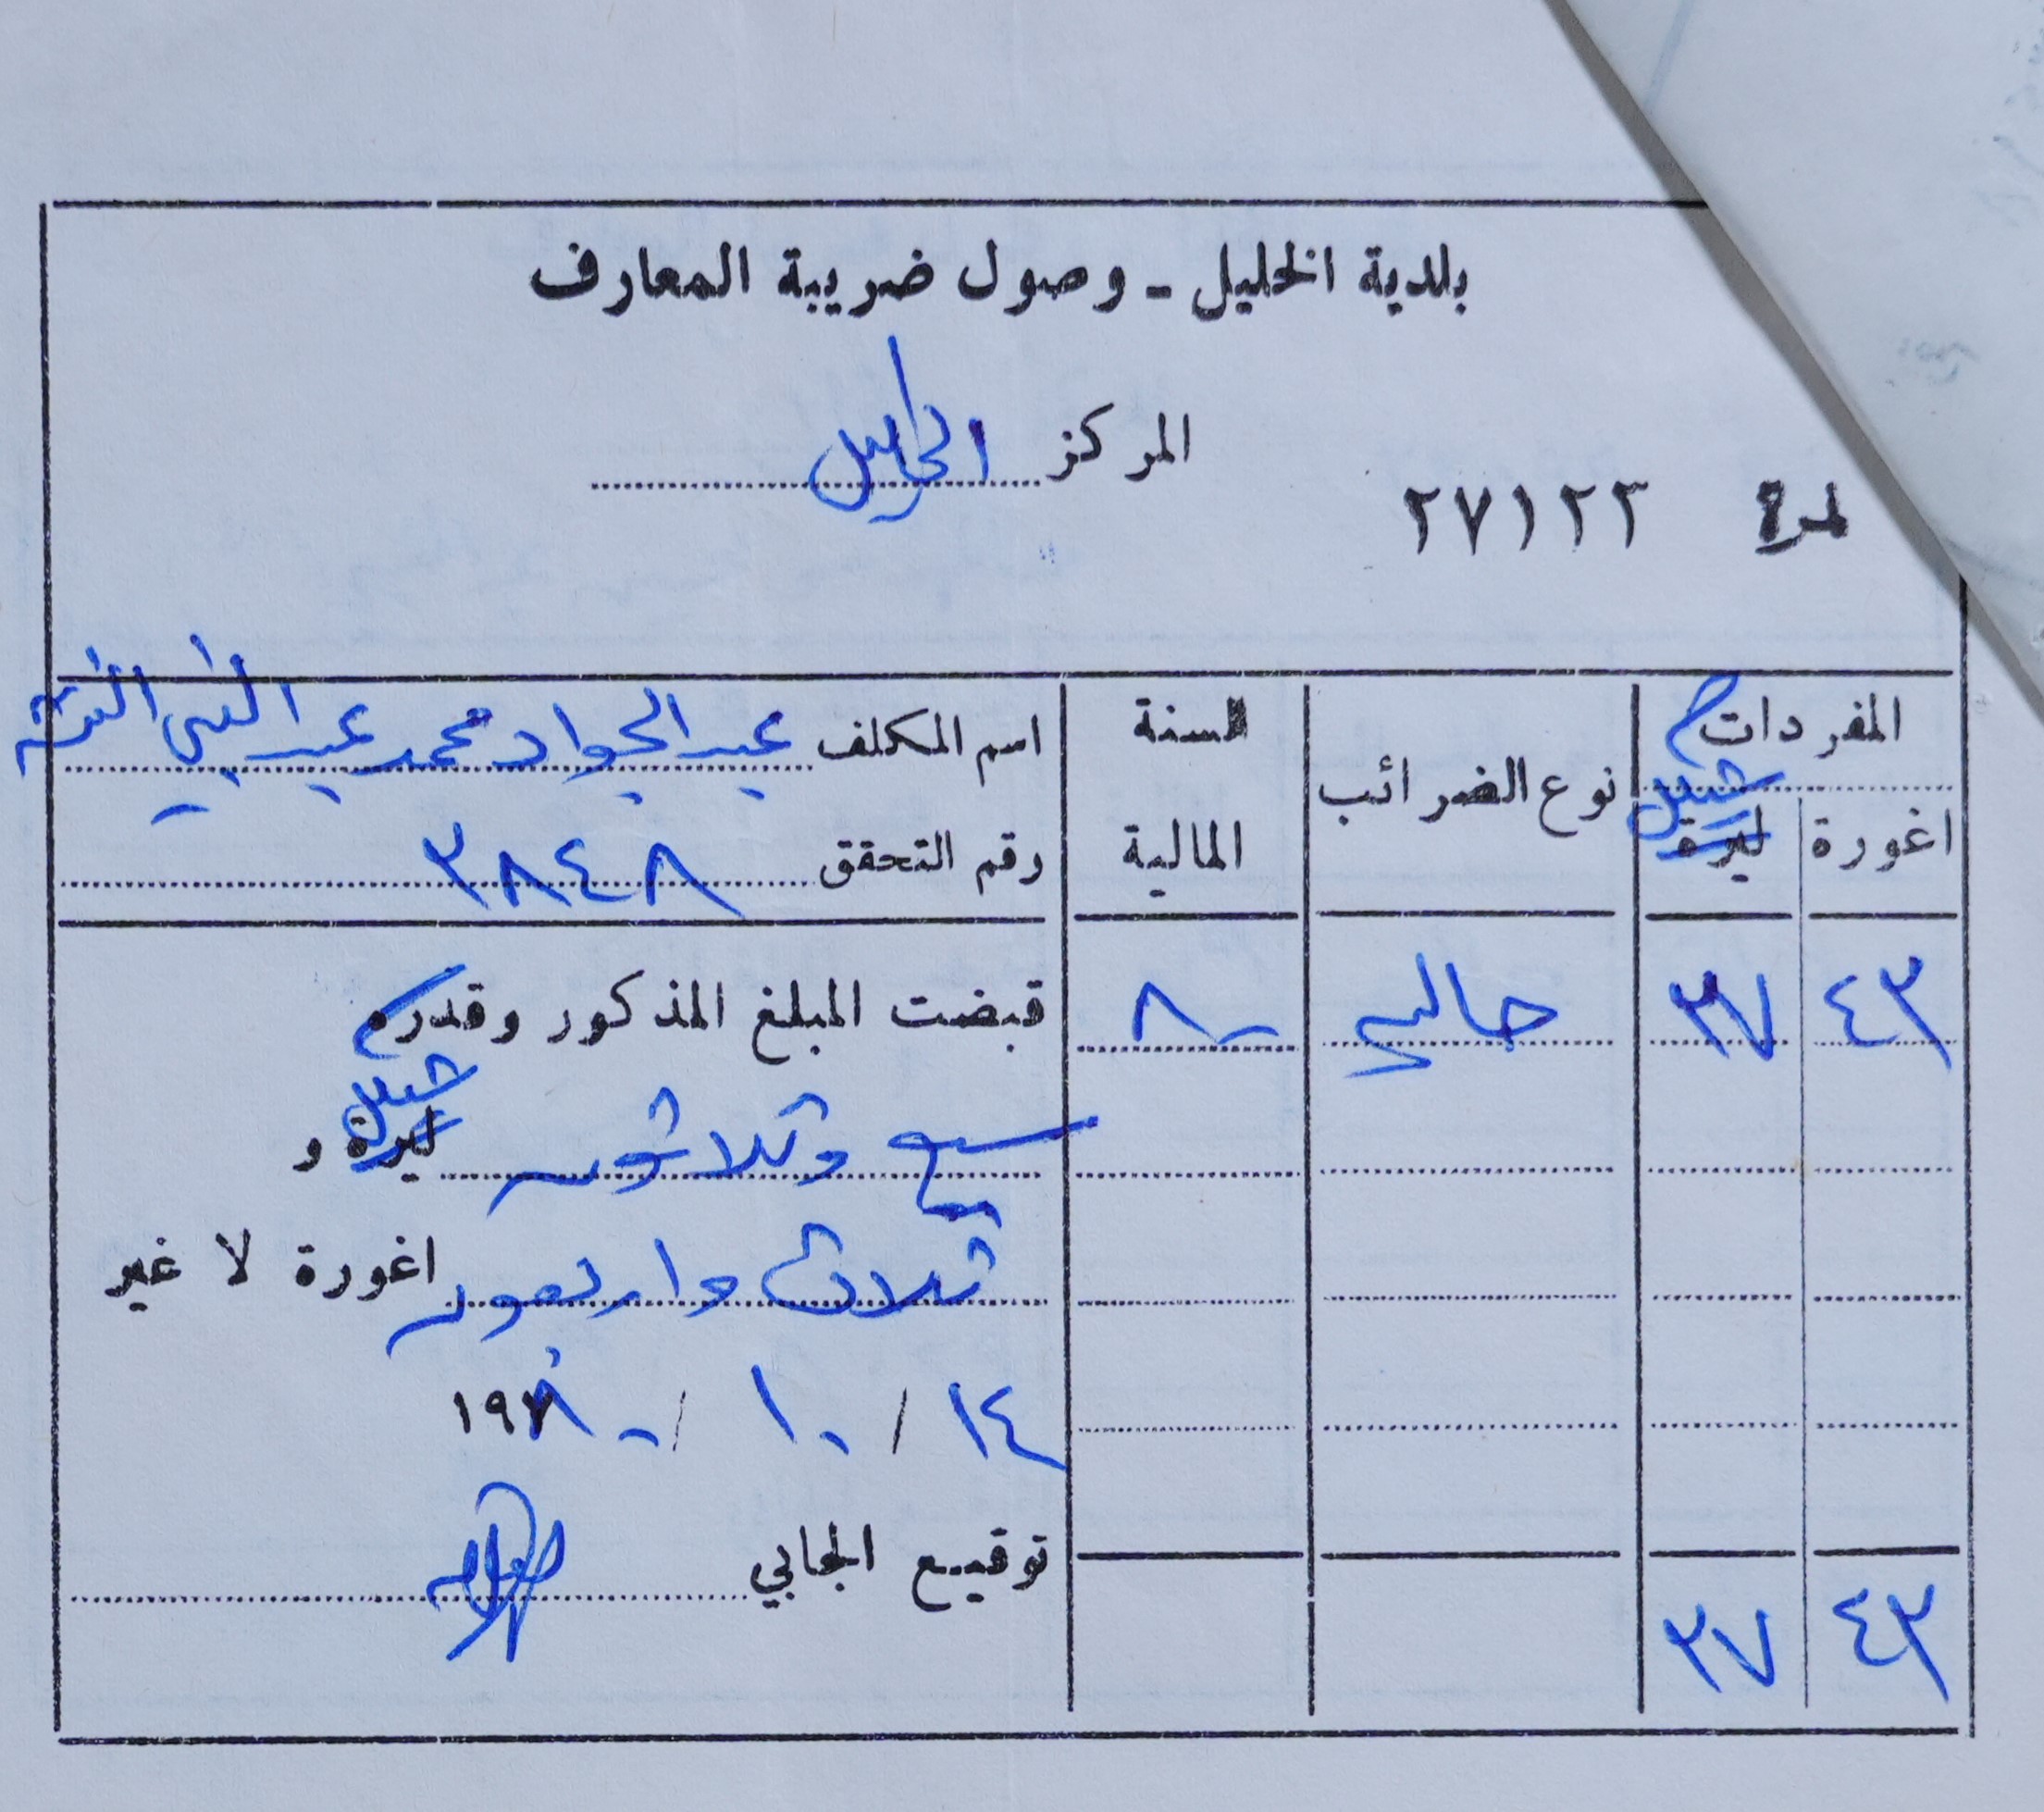 بلدية الخليل - وصول ضريبة المعارف
المركز الخليل
نمرة ٢٧١٢٢
المفردات
اغورة ليرة شيكل
نوع الضرائب
السنة المالية
اسم المكلف عبد الجواد محمد عبد النبي النتشة
رقم التحقق ٣٨٤٨
٤٣ ٣٧ حالي ٨٠
قبضت المبلغ المذكور وقدره
سبع وثلاثون ليرة شيكل و
ثلاث واربعون اغورة لا غير
١٤ / ١٠ / ١٩٨٠
توقيع الجابي
٤٣ ٣٧